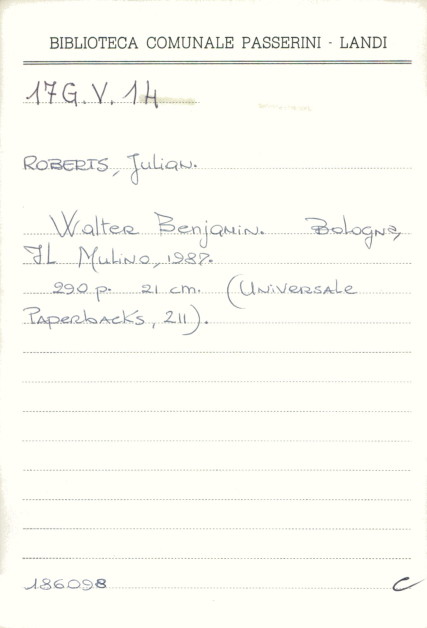 BIBLIOTECA COMUNALE PASSERINI - LANDI
17G.V. 14
ROBERTS, Julian.
Walter Benjamin. Bologna,
IL Mulino, 1987.
290 p. 21 cm. (Universale
Paperbacks, 211).
186098 C